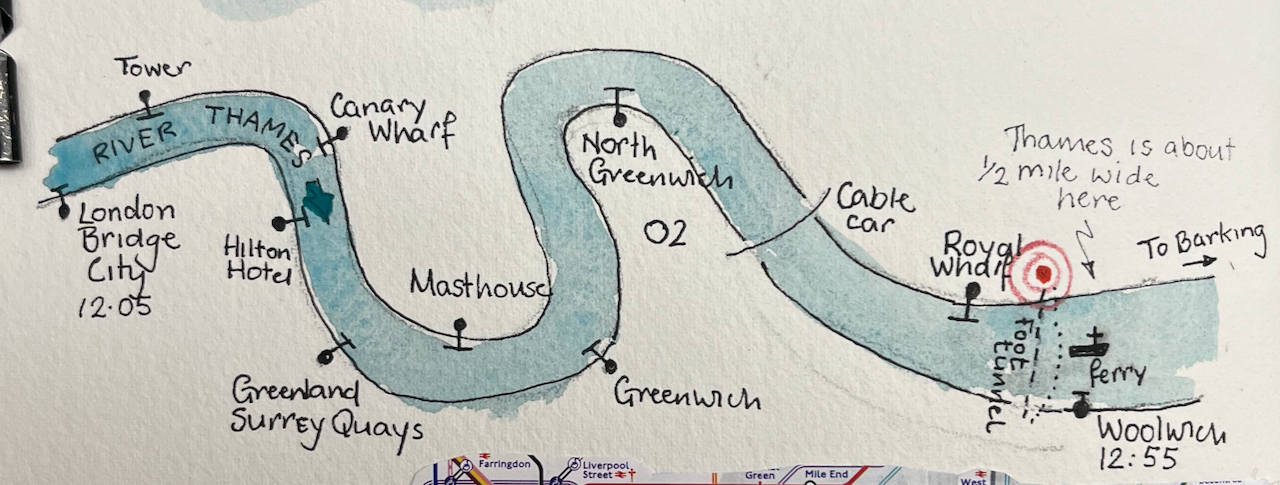 Tower
RIVER THAMES
Canary
Wharf
London
Bridge
City
12.05
Hilton
Hotel
Greenland
Surrey Quays
Masthouse
Greenwich
North
Greenwich
O2
Cable
car
Royal
Wharf
Thames is about
1/2 mile wide
here
To Barking
foot
tunnel
ferry
Woolwich
12:55
Farringdon
Liverpool
Street
Green
Mile End
West